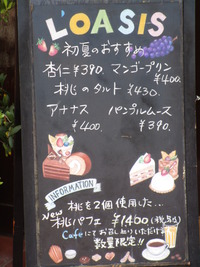 L'OASIS
初夏のおすすめ
杏仁¥390. マンゴープリン
¥400.
桃のタルト ¥430.
アナナス パンプルムース
¥400. ¥390.
INFORMATION
New 桃を2個使用した…
桃パフェ ¥1400(税込)
Cafeにてお召し上りいただけます
数量限定!!